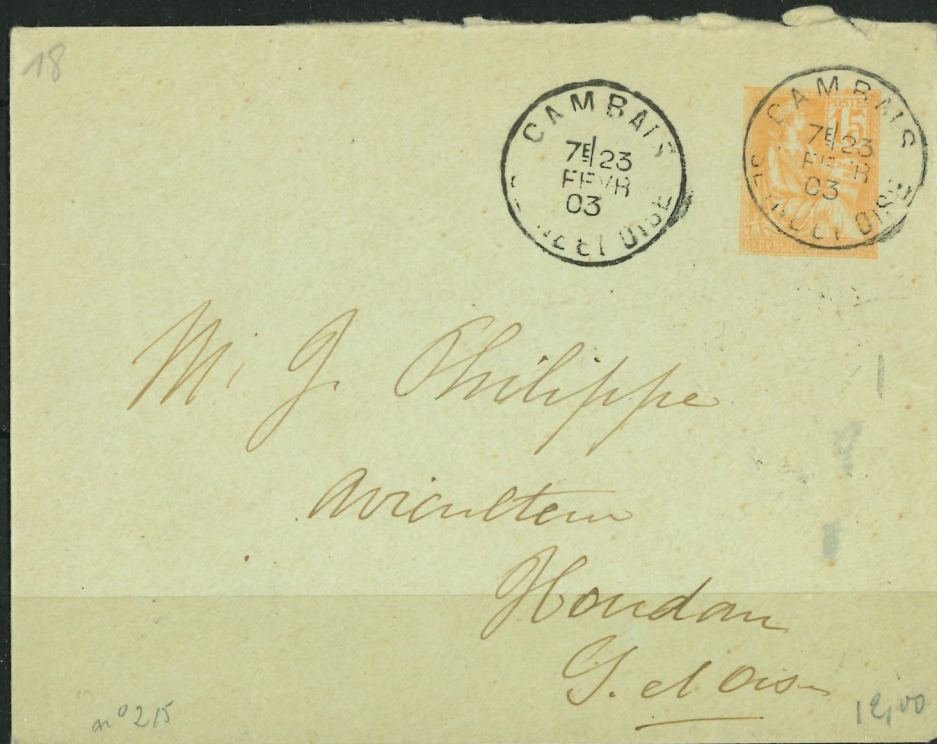 18
CAMBAIS
7E 23
FEVR
03
OISE
POSTES
15
CAMBAIS
7E 23
FEVR
03
SEINE ET OISE
M. J. Philippe
Aviculteur
Houdan
S. et Oise
n° 215
12,00